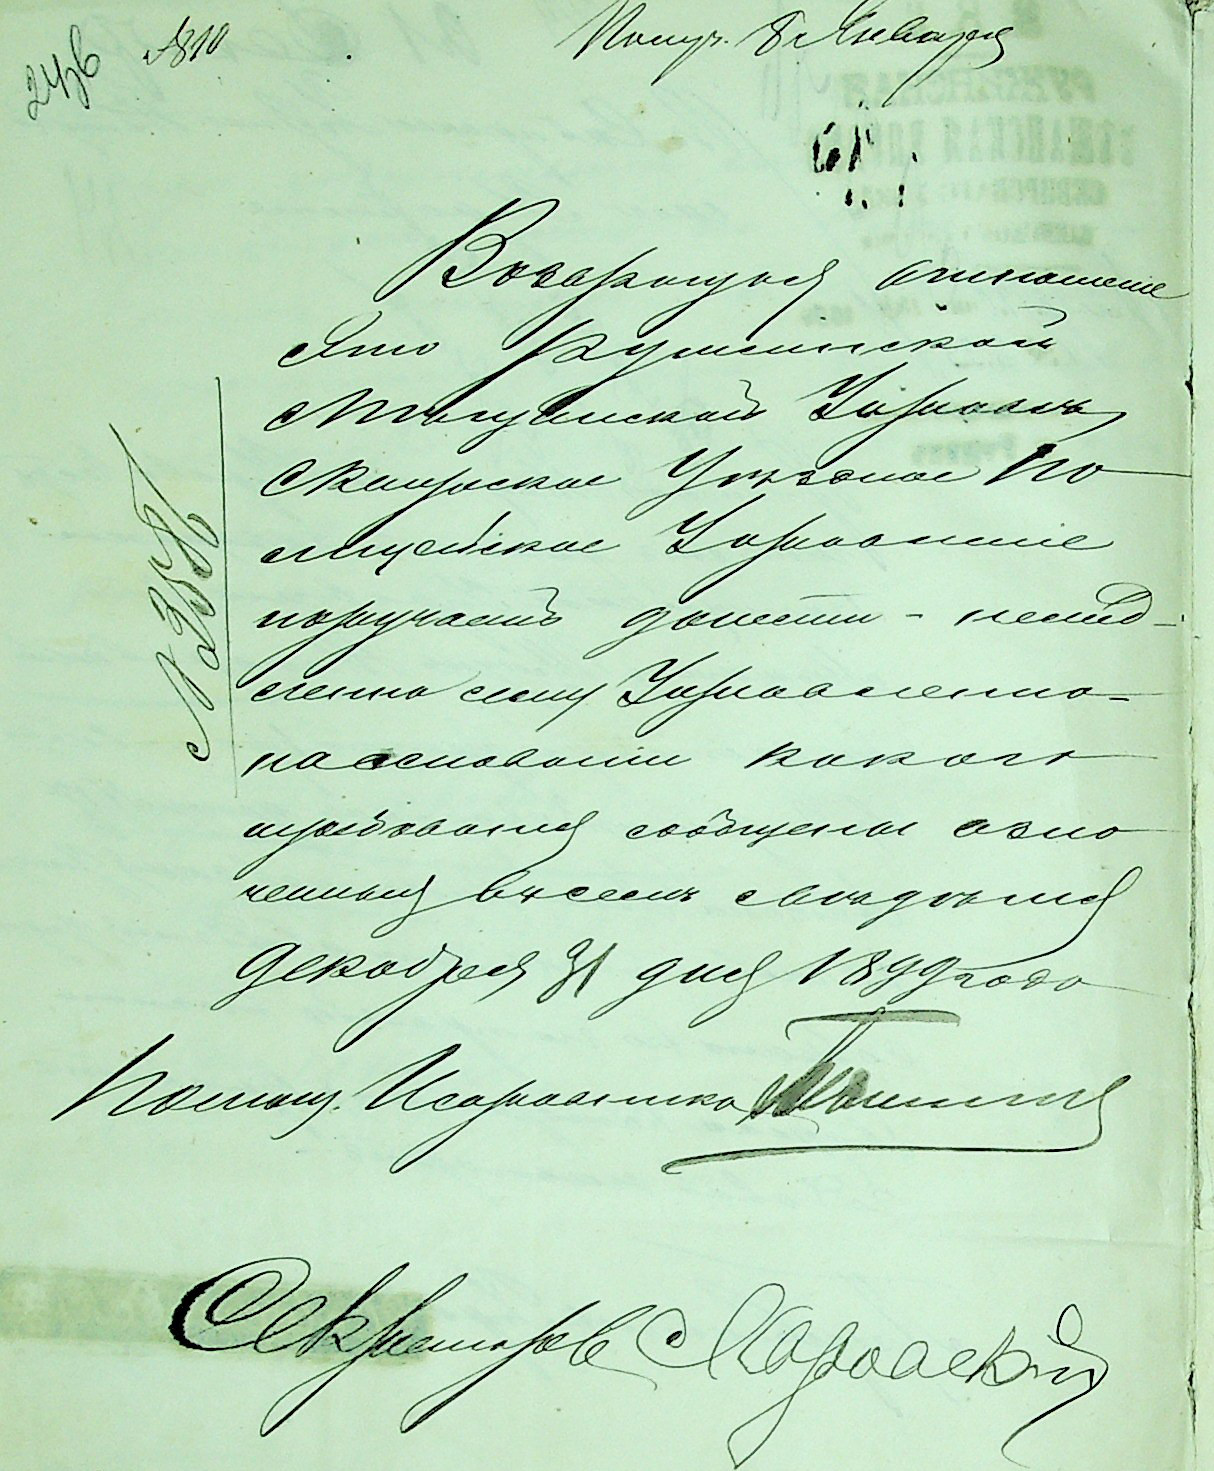 №10
Получ. 8 Января
Возвращая отношение
это Ружинской
Мещанской Управѣ,
Сквирское Уѣздное По
лицейское Управление
поручаетъ донести - немед-
ленно сему Управлению-
на основании какого
требования сообщены озна
ченныя въ семъ свѣдѣния
Декабря 31 дня 1899 года
Помощ. Исправника
Секретарь